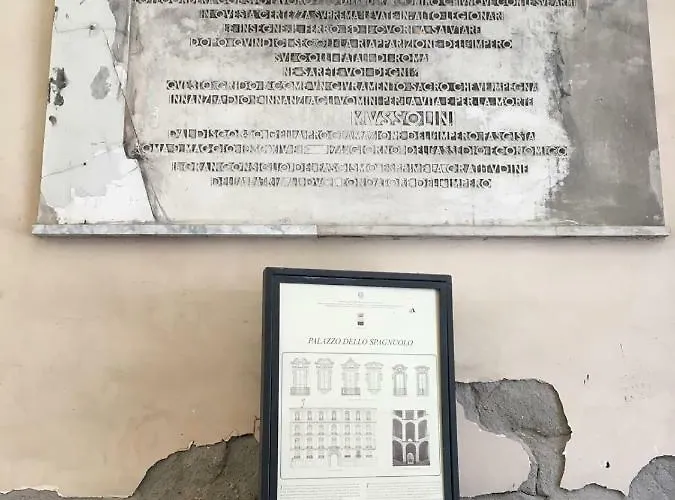 IN QVESTA CERTEZZA SVPREMA LEVATE IN ALTO LEGIONARI
LE INSEGNE IL FERRO ED I CVORI A SALVTARE
DOPO QVINDICI SECOLI LA RIAPPARIZIONE DELL'IMPERO
SVI COLLI FATALI DI ROMA
NE SARETE VOI DEGNI?
QVESTO GRIDO È COME VN GIVRAMENTO SACRO CHE VI IMPEGNA
INNANZI A DIO E INNANZI AGLI VOMINI PER LA VITA E PER LA MORTE
MVSSOLINI
DAL DISCORSO DELLA PROCLAMAZIONE DELL'IMPERO FASCISTA
ROMA 9 MAGGIO GIORNO DELL'ASSEDIO ECONOMICO
IL GRAN CONSIGLIO DEL FASCISMO ESPRIME LA GRATITVDINE
DELLA PATRIA AL DVCE FONDATORE DELL'IMPERO
PALAZZO DELLO SPAGNUOLO